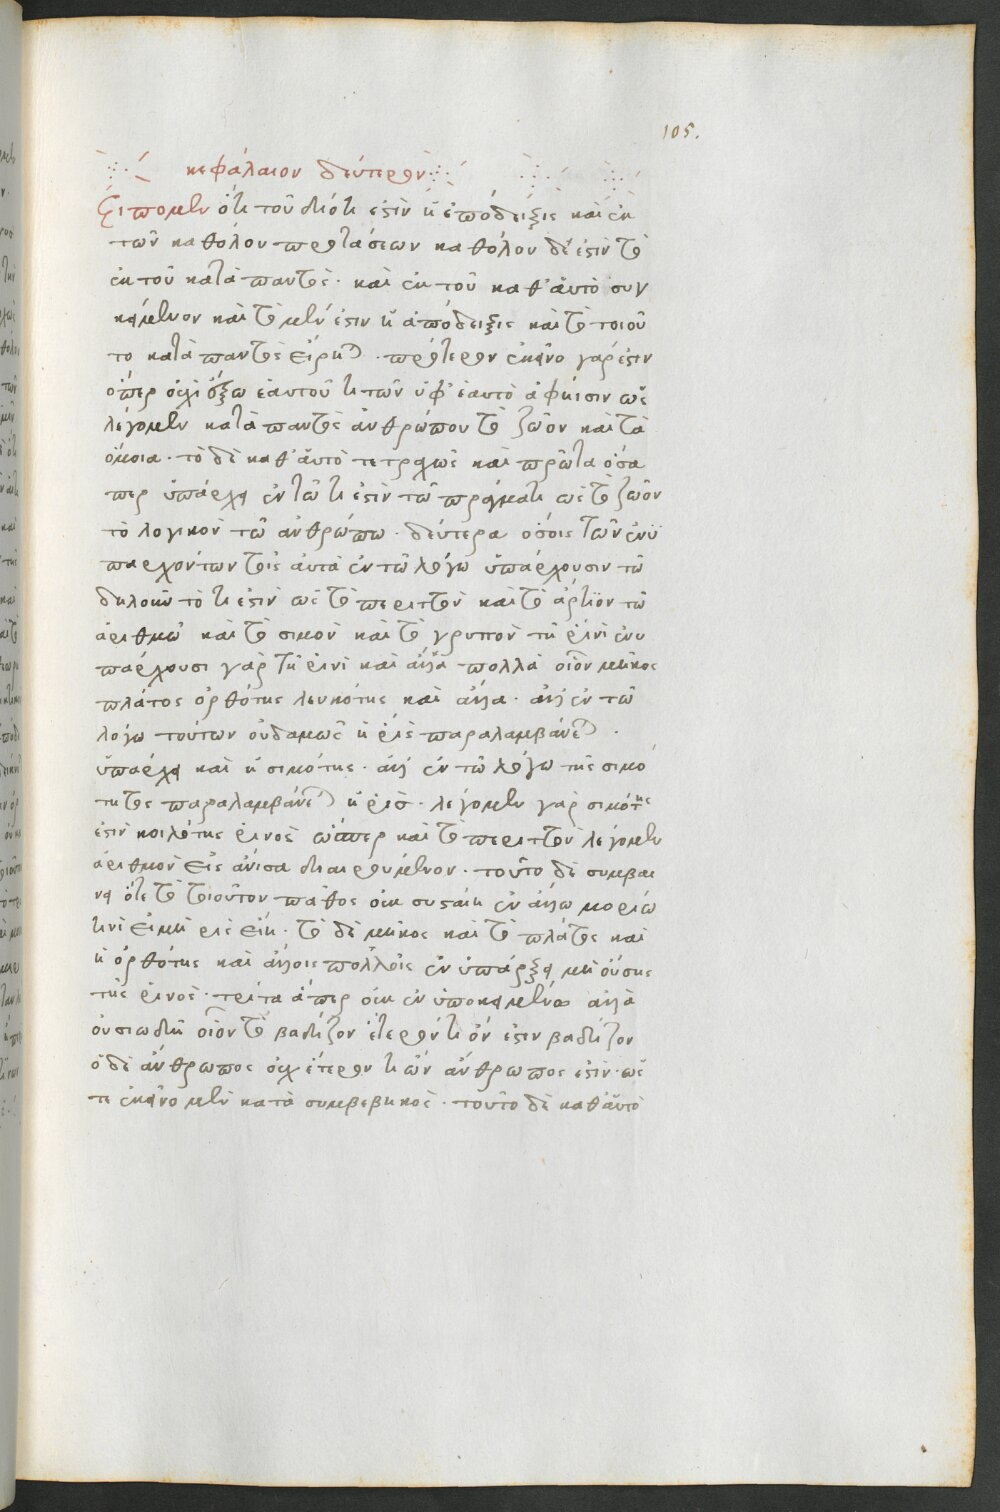 105.
κεφάλαιον δεύτερον
Εἴπομεν ὅτι τοῦ διότι ἐστὶν ἡ ἀπόδειξις καὶ ἐκ
τῶν καθόλου προτάσεων καθόλου δέ ἐστιν τὸ
ἐκ τοῦ κατὰ παντὸς· καὶ ἐκ τοῦ καθ' αὑτὸ συγ
κείμενον καὶ τὸ μέν ἐστιν ἡ ἀπόδειξις καὶ τὸ τοιοῦ
το κατὰ παντὸς εἴρηται. πρότερον ἐκεῖνο γάρ ἐστιν
ὅπερ οὐχὶ ἔξω ἑαυτοῦ τι τῶν ὑφ' ἑαυτὸ ἀφίησιν ὡς
λέγομεν κατὰ παντὸς ἀνθρώπου τὸ ζῶον καὶ τὰ
ὅμοια· τὸ δὲ καθ' αὑτὸ τετραχῶς καὶ πρῶτα ὅσα
περ ὑπάρχει ἐν τῶ τί ἐστιν τῶ πράγματι ὡς τὸ ζῶον
τὸ λογικὸν τῶ ἀνθρώπω· δεύτερα ὅσοις τῶν ἐνυ
παρχόντων τοῖς αὐτὰ ἐν τῶ λόγω ὑπάρχουσιν τῶ
δηλοῦν τὸ τί ἐστὶν ὡς τὸ περιττὸν καὶ τὸ ἄρτιον τῶ
ἀριθμῶ καὶ τὸ σιμὸν καὶ τὸ γρυπὸν τῆ ῥινὶ ἐνυ
πάρχουσι γὰρ τῆ ῥινὶ καὶ ἄλλα πολλὰ οἷον μῆκος
πλάτος ὀρθότης λευκότης καὶ ἄλλα· ἀλλ' ἐν τῶ
λόγω τούτων οὐδαμῶς ἡ ῥὶς παραλαμβάνεται·
ὑπάρχει καὶ ἡ σιμότης· ἀλλ' ἐν τῶ λόγω τῆς σιμό
τητος παραλαμβάνεται ἡ ῥίς· λέγομεν γὰρ σιμότης
ἐστὶν κοιλότης ῥινὸς ὥσπερ καὶ τὸ περιττὸν λέγομεν
ἀριθμὸν εἰς ἄνισα διαιρούμενον· τοῦτο δὲ συμβαί
νει ὅτι τὸ τοιοῦτον πάθος οὐκ συσταίη ἐν ἄλλω μορίω
τινὶ εἰ μὴ ῥὶς εἴη· τὸ δὲ μῆκος καὶ τὸ πλάτος καὶ
ἡ ὀρθότης καὶ ἄλλοις πολλοῖς ἐνυπάρξει μὴ οὔσης
τῆς ῥινὸς· τρίτα ἅπερ οὐκ ἐν ὑποκειμένω ἀλλὰ
οὐσιωδῆ οἷον τὸ βαδίζον ἕτερόν τι ὄν ἐστιν βαδίζον
ὁ δὲ ἄνθρωπος οὐχ ἕτερον τι ὢν ἄνθρωπος ἐστὶν· ὥς
τε ἐκεῖνο μὲν κατὰ συμβεβηκὸς· τοῦτο δὲ καθ' αὑτὸ